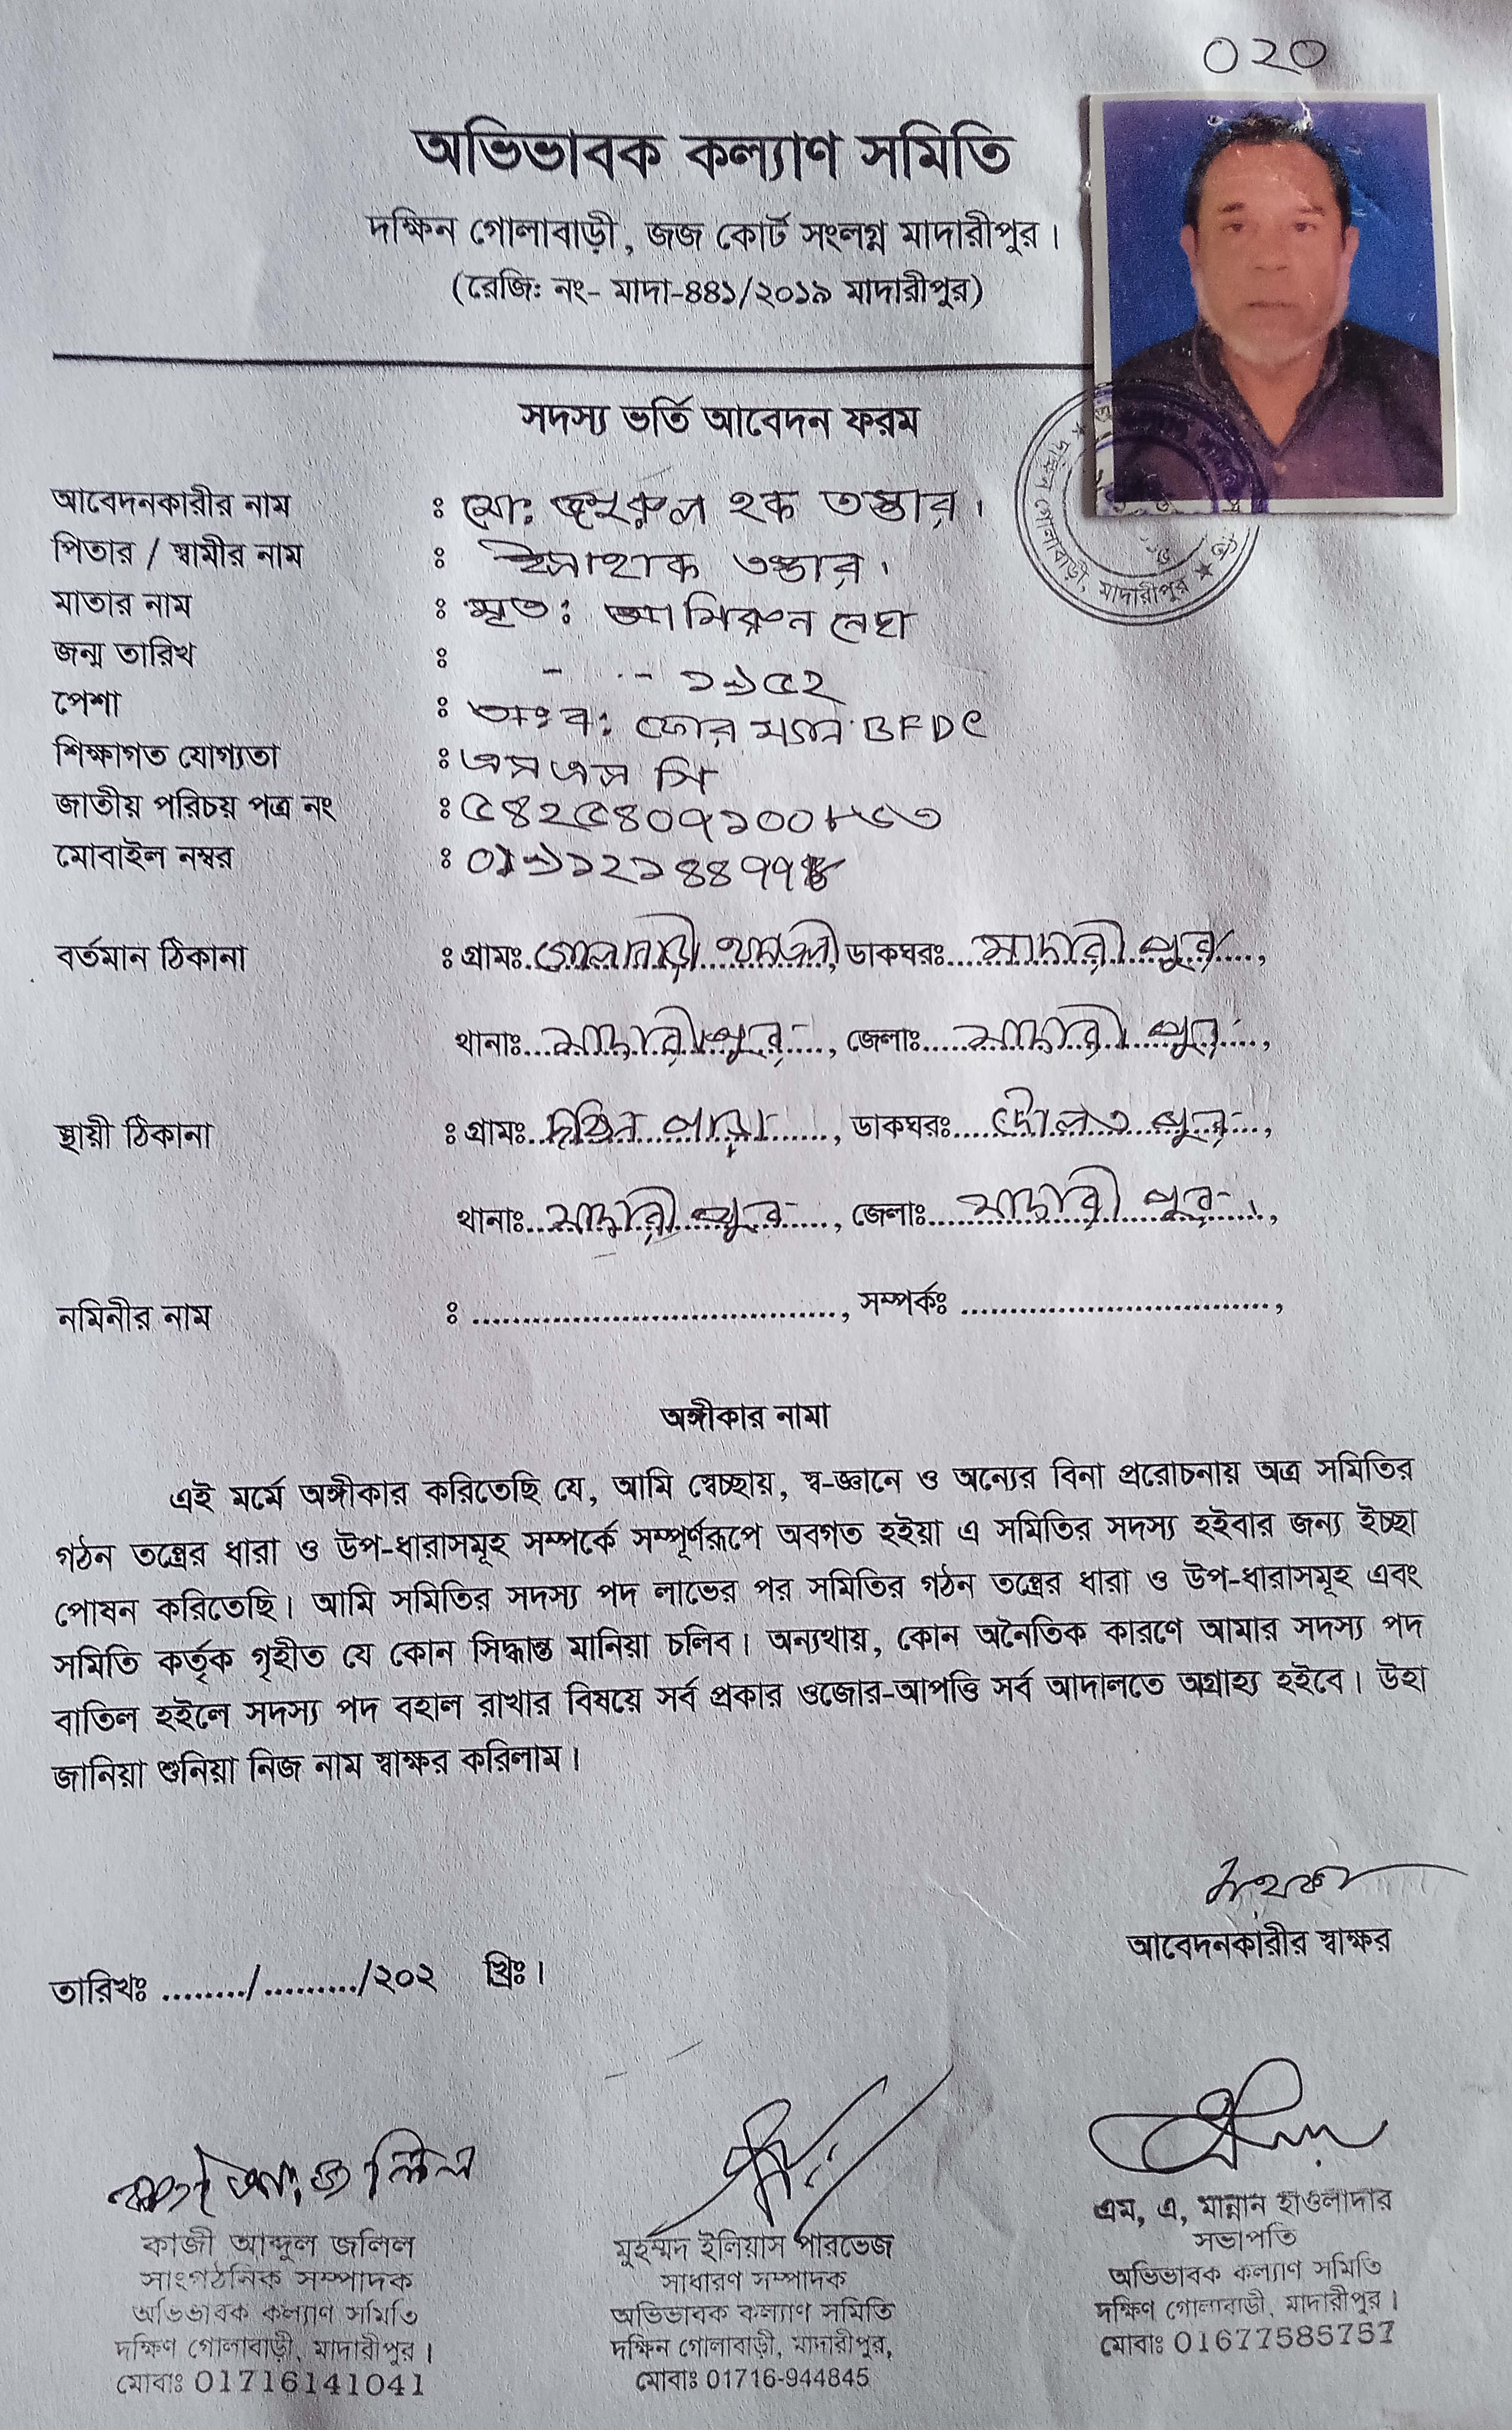 ০২০
অভিভাবক কল্যাণ সমিতি
দক্ষিন গোলাবাড়ী, জজ কোর্ট সংলগ্ন মাদারীপুর।
(রেজিঃ নং- মাদা-৪৪১/২০১৯ মাদারীপুর)
সদস্য ভর্তি আবেদন ফরম
আবেদনকারীর নাম : মোঃ জহুরুল হক তস্তার।
পিতার / স্বামীর নাম : ইসাহাক তস্তার।
মাতার নাম : মৃতঃ আমিরুন নেছা
জন্ম তারিখ : - - ১৯৫২
পেশা : অবঃ ফোর ম্যান BFDC
শিক্ষাগত যোগ্যতা : এস এস সি
জাতীয় পরিচয় পত্র নং : ৫৪২৫৪০৭১০০৮৬৩
মোবাইল নম্বর :
দক্ষিন গোলাবাড়ী, মাদারীপুর
বর্তমান ঠিকানা : গ্রামঃ গোলাবাড়ী, ডাকঘরঃ মাদারীপুর,
থানাঃ মাদারীপুর, জেলাঃ মাদারীপুর,
স্থায়ী ঠিকানা : গ্রামঃ দক্ষিন পাড়া, ডাকঘরঃ দৌলতপুর,
থানাঃ মাদারীপুর, জেলাঃ মাদারীপুর,
নমিনীর নাম : ...................................., সম্পর্কঃ ................................,
অঙ্গীকার নামা
এই মর্মে অঙ্গীকার করিতেছি যে, আমি স্বেচ্ছায়, স্ব-জ্ঞানে ও অন্যের বিনা প্ররোচনায় অত্র সমিতির
গঠন তন্ত্রের ধারা ও উপ-ধারাসমূহ সম্পর্কে সম্পূর্ণরূপে অবগত হইয়া এ সমিতির সদস্য হইবার জন্য ইচ্ছা
পোষন করিতেছি। আমি সমিতির সদস্য পদ লাভের পর সমিতির গঠন তন্ত্রের ধারা ও উপ-ধারাসমূহ এবং
সমিতি কর্তৃক গৃহীত যে কোন সিদ্ধান্ত মানিয়া চলিব। অন্যথায়, কোন অনৈতিক কারণে আমার সদস্য পদ
বাতিল হইলে সদস্য পদ বহাল রাখার বিষয়ে সর্ব প্রকার ওজোর-আপত্তি সর্ব আদালতে অগ্রাহ্য হইবে। উহা
জানিয়া শুনিয়া নিজ নাম স্বাক্ষর করিলাম।
আবেদনকারীর স্বাক্ষর
তারিখঃ ......../........./২০২ খ্রিঃ।
কাজী আব্দুল জলিল
সাংগঠনিক সম্পাদক
অভিভাবক কল্যাণ সমিতি
দক্ষিণ গোলাবাড়ী, মাদারীপুর।
মোবাঃ 01716141041
মুহম্মদ ইলিয়াস পারভেজ
সাধারণ সম্পাদক
অভিভাবক কল্যাণ সমিতি
দক্ষিন গোলাবাড়ী, মাদারীপুর,
মোবাঃ 01716-944845
এম, এ, মান্নান হাওলাদার
সভাপতি
অভিভাবক কল্যাণ সমিতি
দক্ষিণ গোলাবাড়ী, মাদারীপুর।
মোবাঃ 01677585757